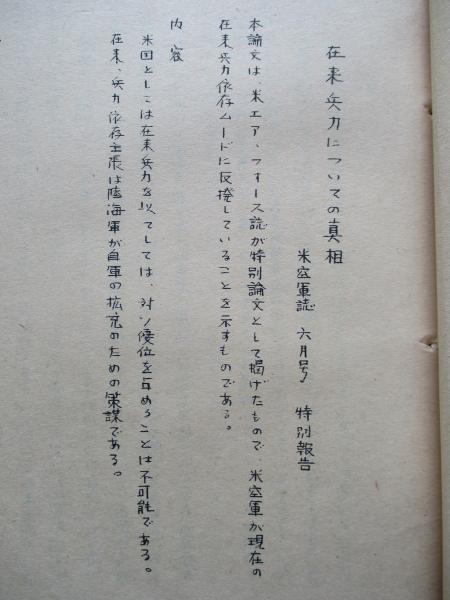 在来兵力についての真相
米空軍誌 六月号 特別報告
本論文は、米エア、フォース誌が特別論文として掲げたもので、米空軍が現在の
在来兵力依存ムードに反撥していることを示すものである。
内容
米国としては在来兵力を以てしては、対ソ優位を占めることは不可能である。
在来、兵力依存主張は陸海軍が自軍の拡充のための策謀である。